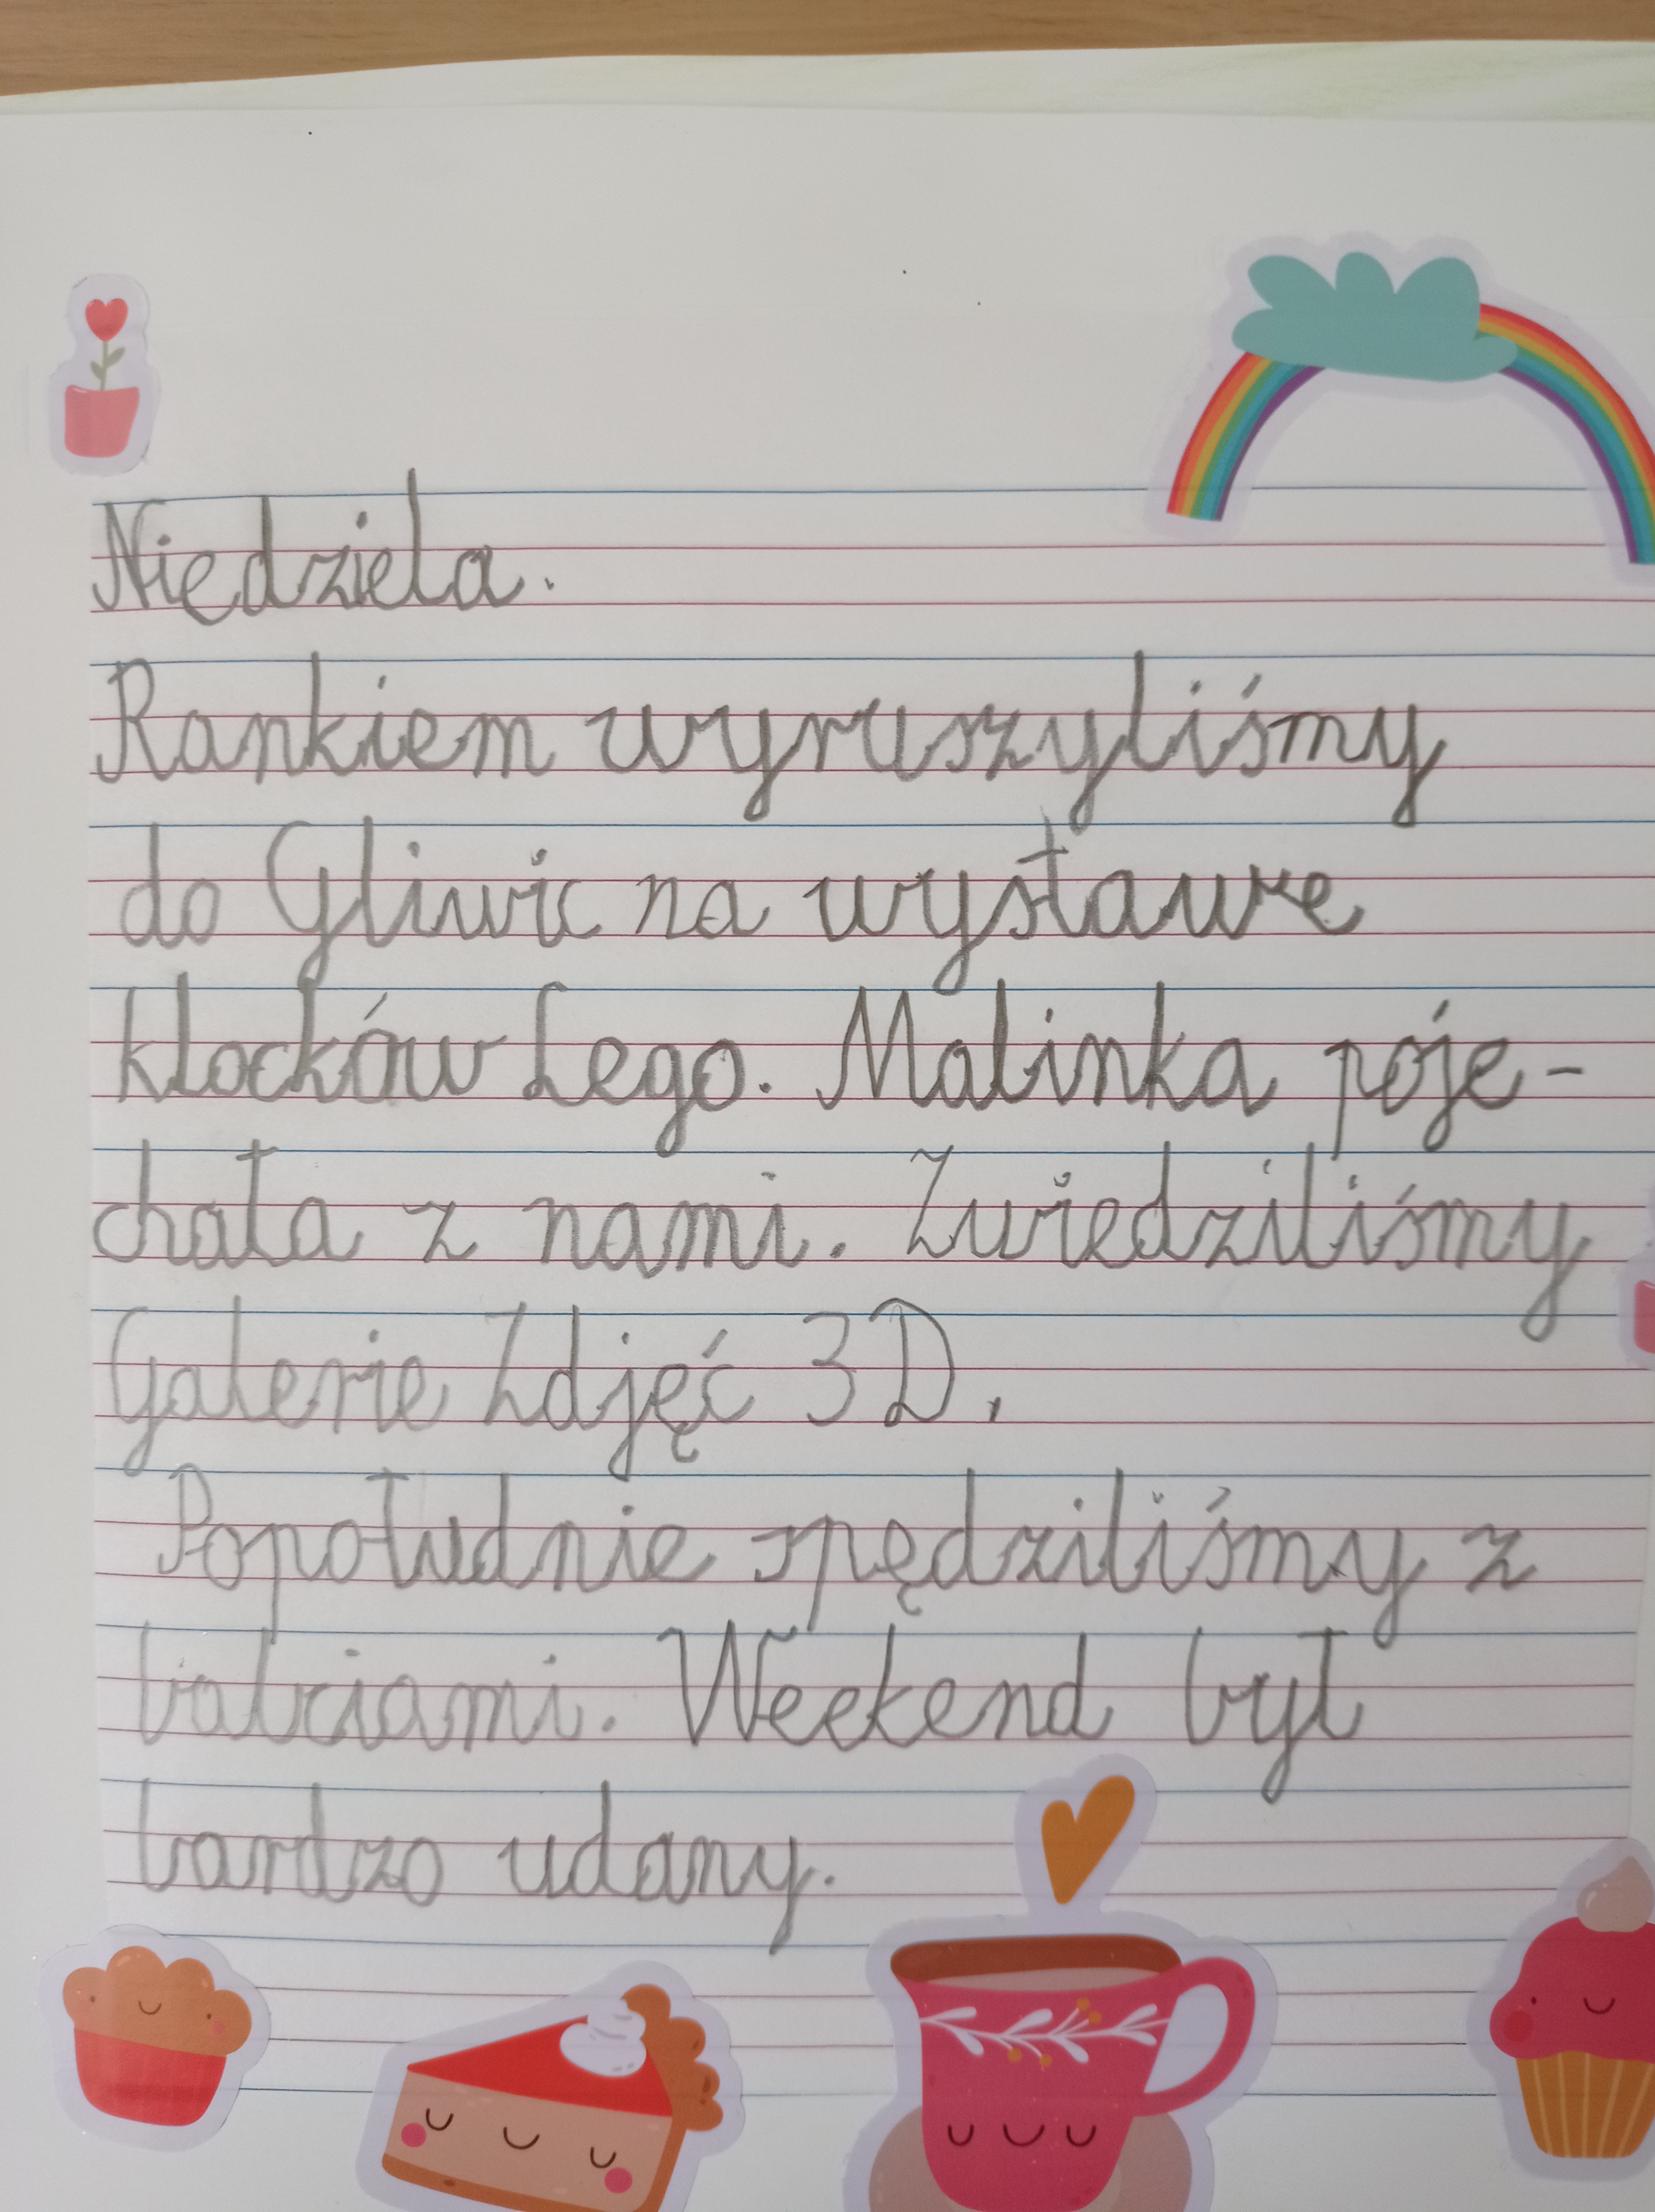 Niedziela.
Rankiem wyruszyliśmy
do Gliwic na wystawe
klocków Lego. Malinka poje-
chała z nami. Zwiedziliśmy
Galerie Zdjęć 3D.
Popołudnie spędziliśmy z
babciami. Weekend był
bardzo udany.